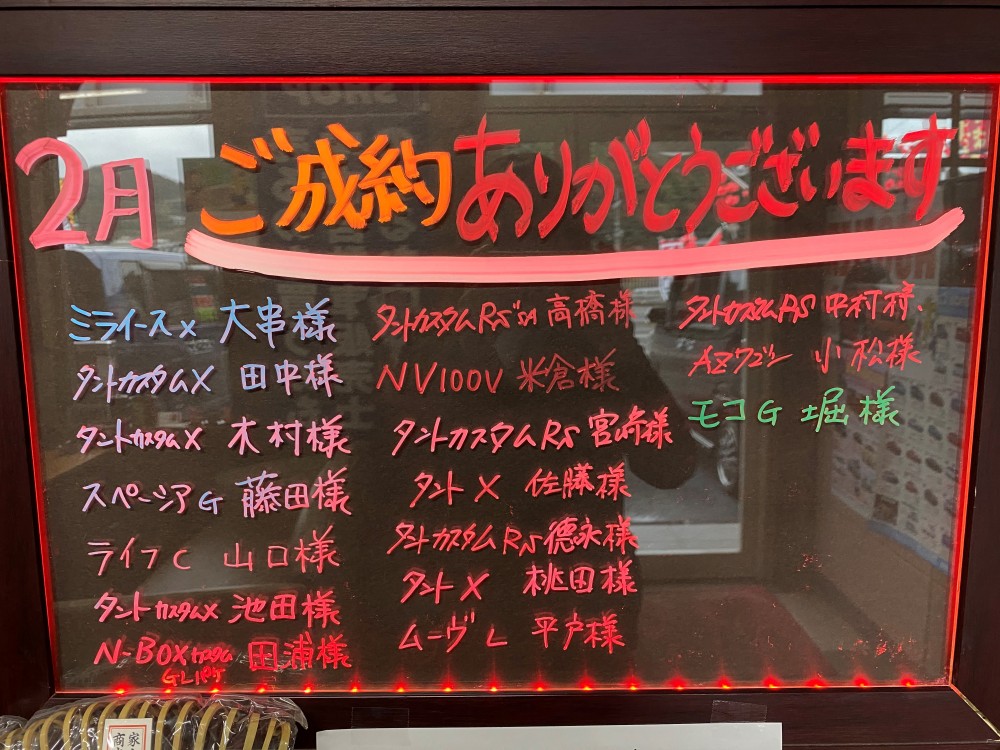 2月 ご成約ありがとうございます
ミライース X 大串様
タントカスタムX 田中様
タントカスタムX 木村様
スペーシア G 藤田様
ライフ C 山口様
タントカスタムX 池田様
N-BOXカスタム 田浦様
タントカスタムRS 高橋様
NV100V 米倉様
タントカスタムRS 宮崎様
タント X 佐藤様
タントカスタム RS 徳永様
タント X 桃田様
ムーヴ L 平戸様
タントカスタムRS 中村様
AZワゴン 小松様
モコ G 堀様
商家